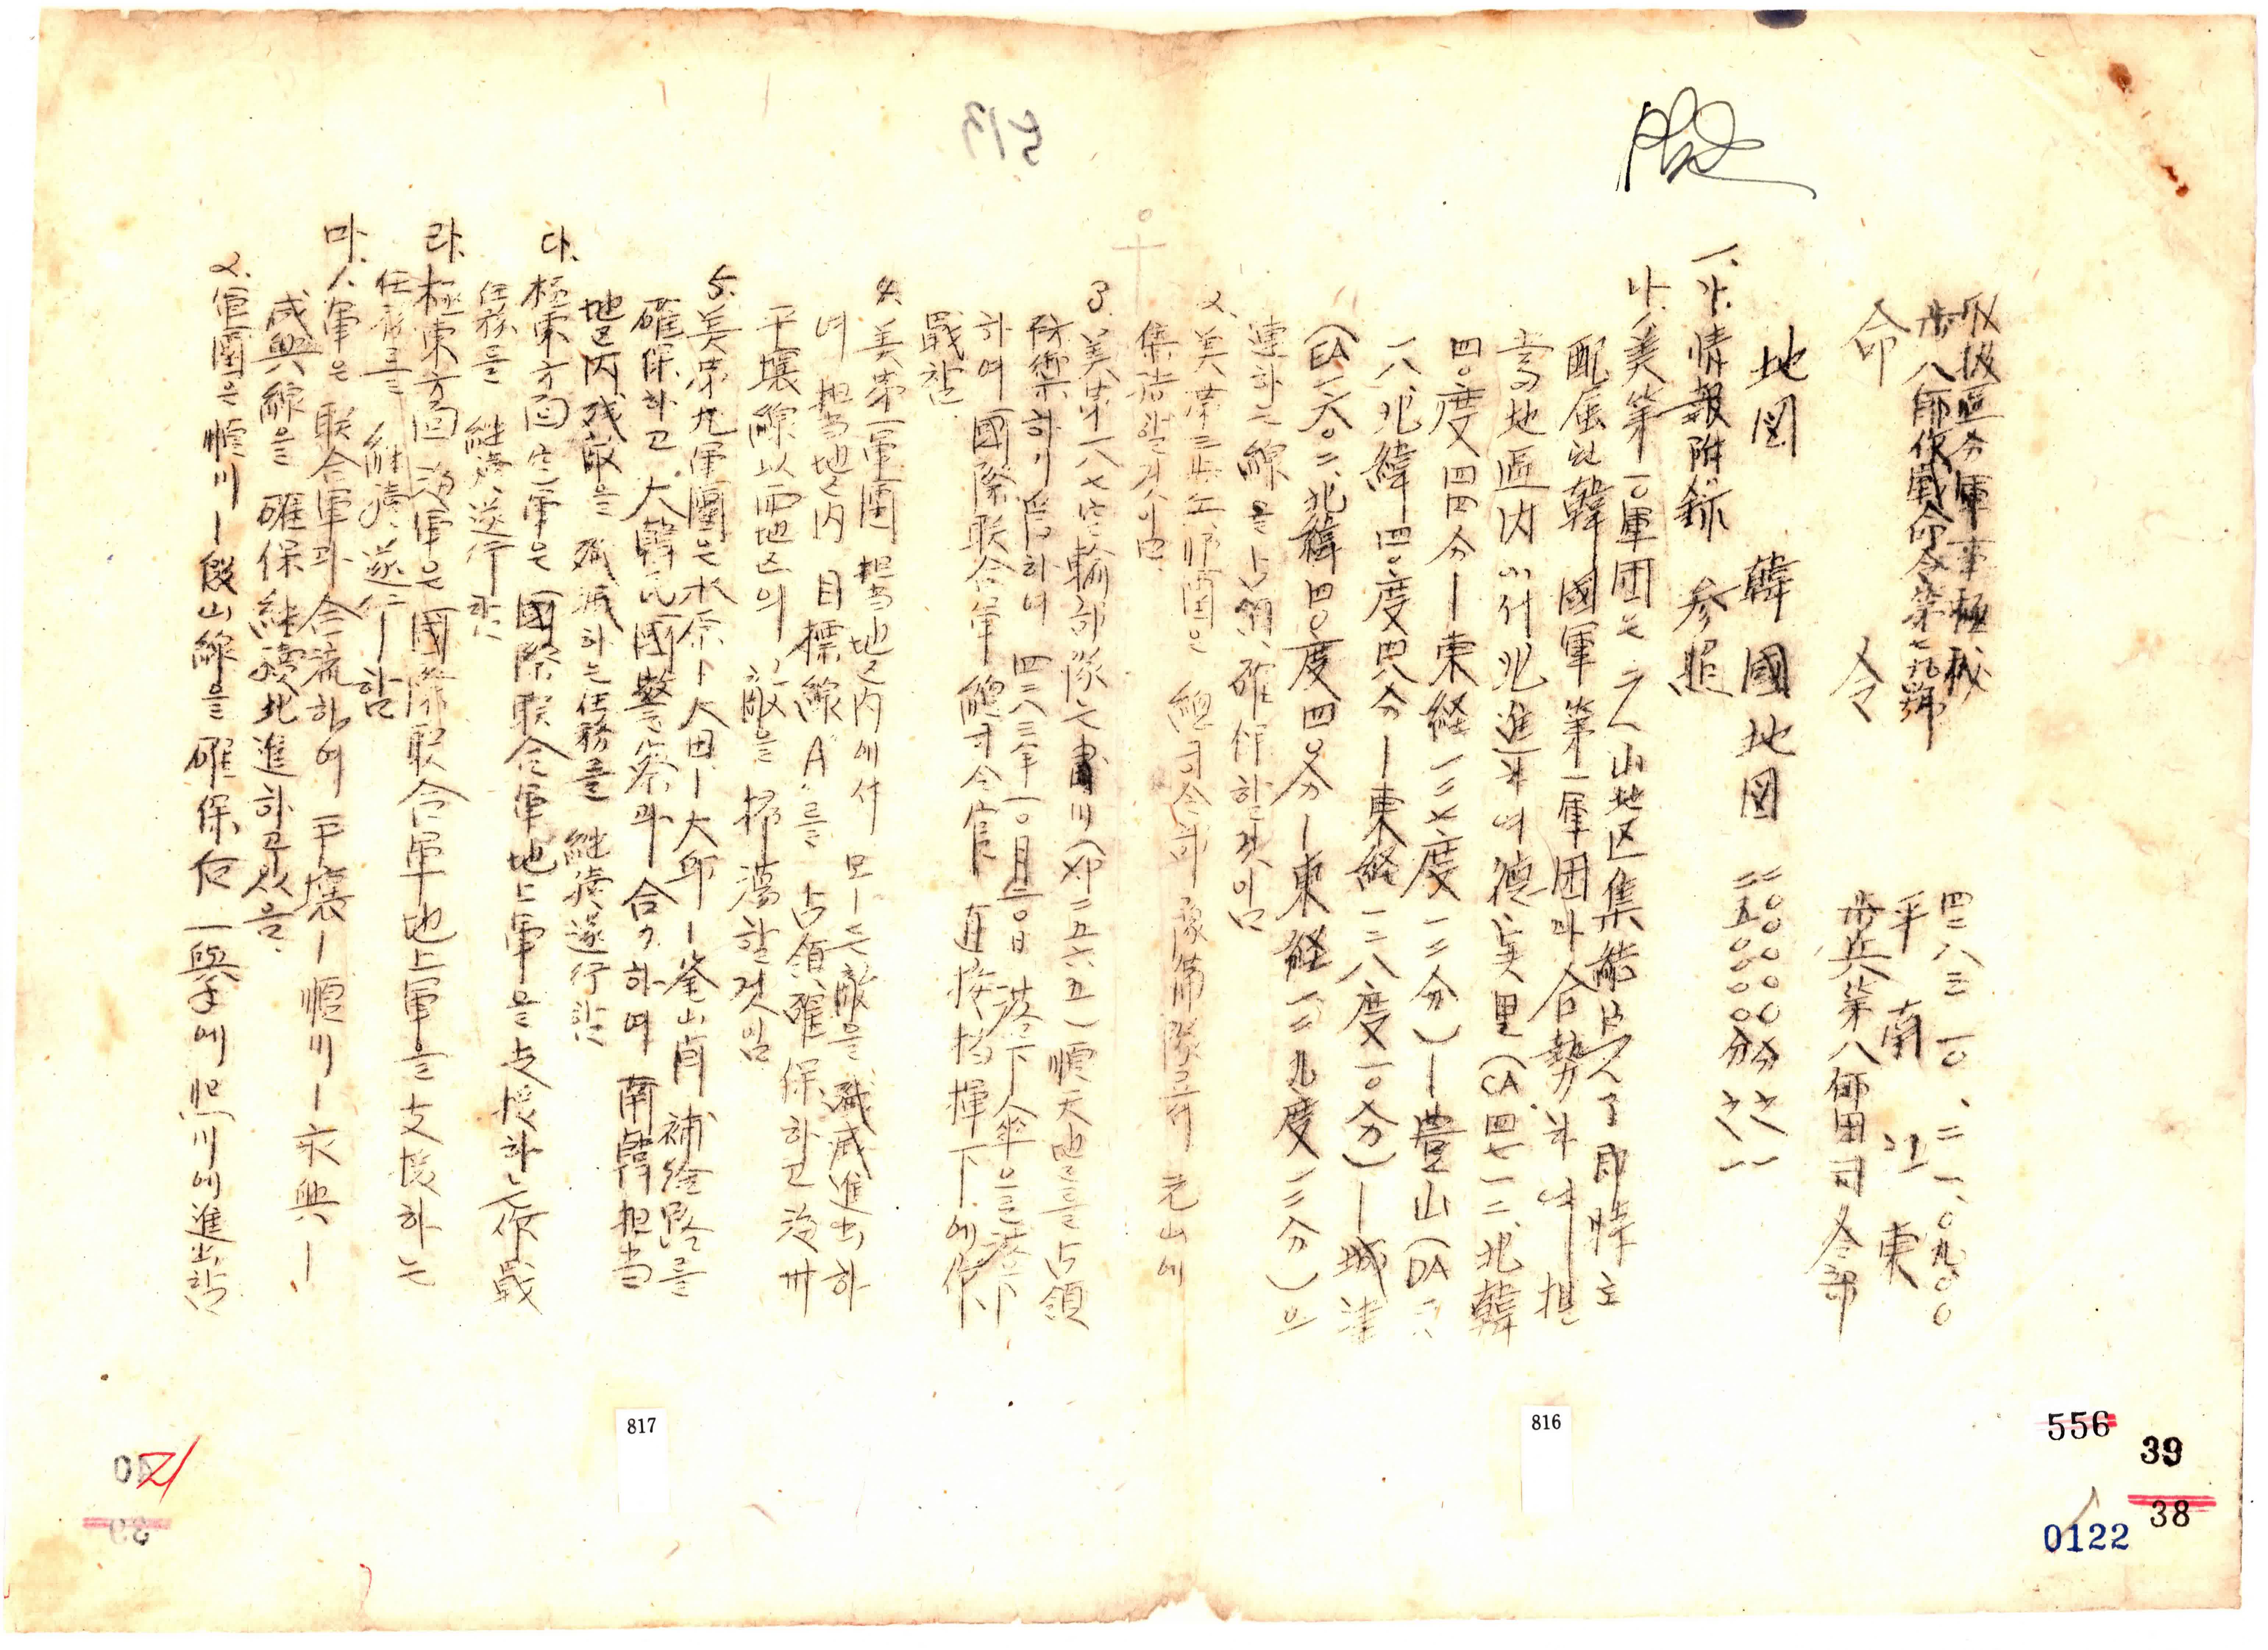 取扱區分 軍事極秘
步八師作戰命令第七九號
命 令
四二八三、一〇、二一、〇九〇〇
平 南 江 東
步兵第八師団司令部
地図 韓國地図
一、가、情報附錄 参照
나、1、美第一〇軍団은 元山地区集結完了即時
配属韓國軍第一軍団과 合勢하여 担
當地區内에서北進하여 德実里(CA四七一二、北韓
四〇度四四分—東経一二七度一二分)—豊山(DA
一八北緯四〇度四八分—東経一二八度一〇分)—城津
(EA 六〇二、北緯四〇度四〇分—東経一二九度一二分)으
連하는線을占領、確保할것임
2、美第三步兵師團은 總司令部 予備隊로서 元山에
集結할것임
3、美第一八七空輸部隊는 肅川(XD二五六五) 順天地区를占領
防禦하기 爲하여 四二八三年一〇月二〇日 落下傘으로落下
하여 國際联合軍 總司令官 直接指揮下에作
戰함
4、美第一軍團 担当地区内에서 모—든敵을、殲滅進出하
며 担当地区内 目標線"A"를 占領、確保하고
平壤線以西地区의 敵을 掃蕩할것임
5、美第九軍團은 水原—大田—大邱—釜山間 補給路를
確保하고 大韓民國警察과 合力하여 南韓担当
地区内残敵을 殲滅하는任務를 継續遂行함
다、極東方面空軍은 國際联合軍地上軍을支援하는作戰
任務를 継續遂行함
라、極東方面海軍은國際联合軍地上軍을支援하는
任務를 継續、遂行함
마、1、軍은 联合軍과合流하여 平壤—順川—永興—
咸興線을 確保継續北進하고있음.
2、軍團은 順川—殷山線을確保后 一擧에熙川에進出함
513
817
816
556
39
38
0122